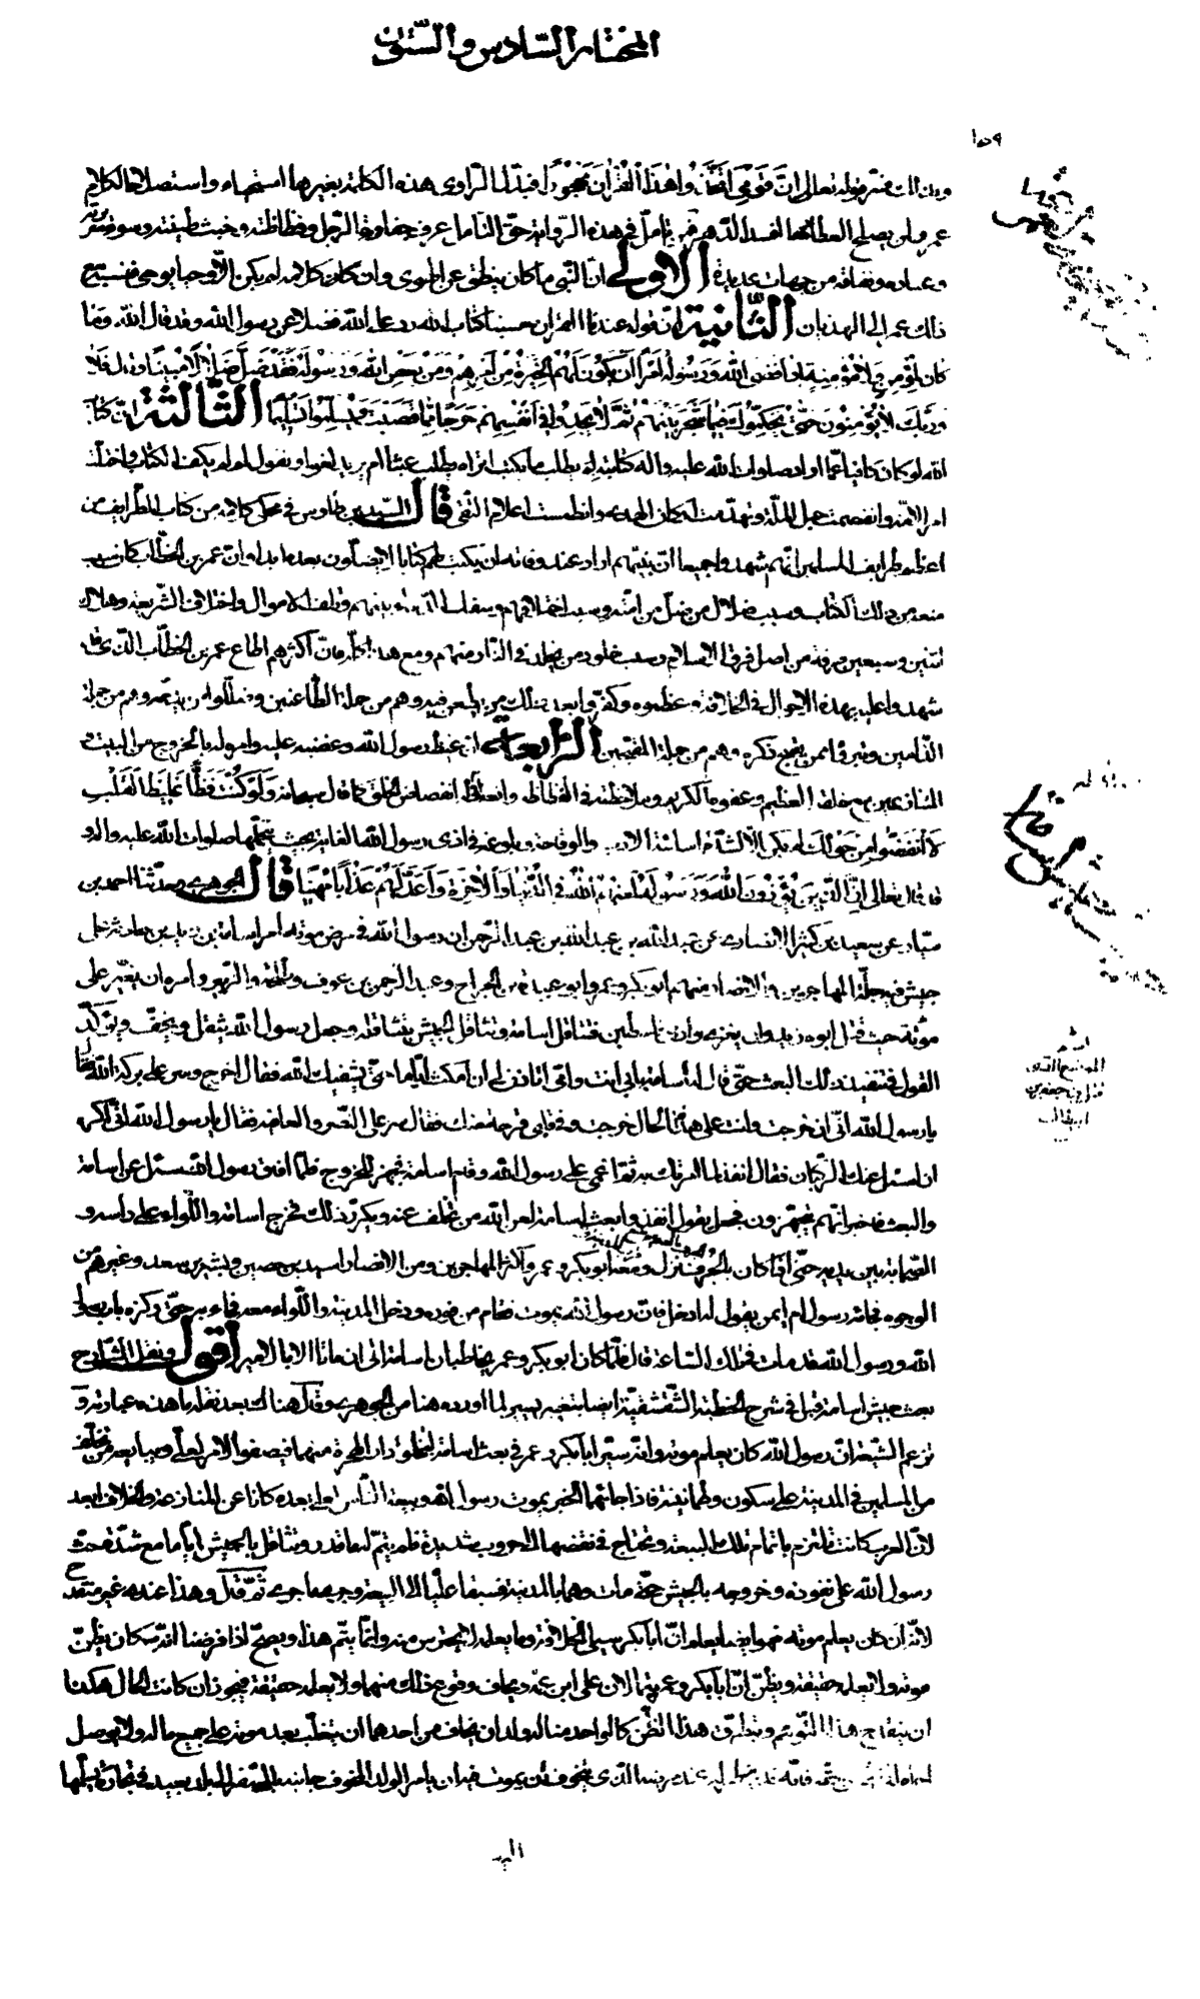 المختار السادس والستون
١٥٩
فسر قوله تعالى ان قومي اتخذوا هذا القرآن مهجورا فبدل الراوي هذه الكلمة بغيرها استحياء واستصلاحا لكلام
عمر ولن يصلح العطار ما افسد الدهر ثم تأمل في هذه الرواية حق التأمل عرف جفاوة الرجل وفظاظته وخبث طينته وسوء
وعناده ونفاقه من جهات عديدة الاولى ان النبي ما كان ينطق عن الهوى وان كان كلامه لم يكن الا وحيا يوحى فنسبة
ذلك عمر الى الهذيان الثانية ان قوله عندنا القرآن حسبنا كتاب الله رد على الله فضلا عن رسول الله وقد قال الله وما
كان لمؤمن ولا مؤمنة اذا قضى الله ورسوله امرا ان يكون لهم الخيرة من امرهم ومن يعص الله ورسوله فقد ضل ضلالا مبينا وقال فلا
وربك لا يؤمنون حتى يحكموك فيما شجر بينهم ثم لا يجدوا في انفسهم حرجا مما قضيت ويسلموا تسليما الثالثة ان كتاب
الله لو كان كافيا عما اراد صلوات الله عليه واله كتابته لم يطلب ما يكتب اتراه يطلب عبثا ام يريد لغوا ونقول لو لم يكف الكتاب واختل
امر الامة وانفصمت حبل الملة وتهدمت اركان الهدى وانطمست اعلام التقى قال السيد بن طاوس في محكي كلامه من كتاب الطرايف من
اعظم طرايف المسلمين انهم شهدوا جميعا ان نبيهم اراد عند وفاته ان يكتب لهم كتابا لا يضلون بعده ابدا وان عمر بن الخطاب كان سبب
منعه من ذلك الكتاب وسبب ضلال من ضل من امته وسبب اختلافهم وسفك الدماء بينهم وتلف الاموال واختلاف الشريعة وهلاك
اثنين وسبعين فرقة من اصل فرق الاسلام وسبب خلود من يخلد في النار منهم ومع هذا كله فان اكثرهم اطاع عمر بن الخطاب الذي قد
شهدوا عليه بهذه الاحوال في الخلافة وعظموه وكفروا بعد ذلك من يطعن فيه وهم من جملة الطاعنين وضللوا من يذمه وهم من جملة
الذامين وتبرؤا ممن يقبح ذكره وهم من جملة المقبحين الرابعة ان غيظ رسول الله وغضبه عليه وامره له بالخروج من البيت
العظيم وعفوه الكريم وملاحظته في الفظاظ وانفضاض الخلق كما قال سبحانه ولو كنت فظا غليظ القلب
لانفضوا من حولك لم يكن الا لشدة اساءته الادب والوقاحة وبلوغه في اذى رسول الله الغاية بحيث تحملها صلوات الله عليه واله
قال تعالى ان الذين يؤذون الله ورسوله لعنهم الله في الدنيا والآخرة واعد لهم عذابا مهينا قال الجوهري وحدثنا احمد بن
سيار عن سعيد بن كثير الانصاري عن عبد الله بن عبد الرحمن ان رسول الله في مرض موته امر اسامة بن زيد بن حارثة على
جيش فيه جلة المهاجرين والانصار منهم ابو بكر وعمر وابو عبيدة بن الجراح وعبد الرحمن بن عوف وطلحة والزبير وامره ان يغير على
موتة حيث قتل ابوه زيد وان يغزى وادي فلسطين فتثاقل اسامة وتثاقل الجيش بتثاقله وجعل رسول الله يثقل ويخف ويؤكد
القول في تنفيذ ذلك البعث حتى قال له اسامة بابي انت وامي اتاذن لي ان امكث اياما حتى يشفيك الله فقال اخرج وسر على بركة الله فقال
يا رسول الله اني ان خرجت وانت على هذه الحال خرجت وفي قلبي قرحة منك فقال سر على النصر والعافية فقال يا رسول الله اني اكره
ان اسئل عنك الركبان فقال انفذ لما امرتك به ثم اغمي على رسول الله وقام اسامة فجهز للخروج فلما افاق رسول الله سئل عن اسامة
والبعث فاخبر انهم يتجهزون فجعل يقول انفذوا بعث اسامة لعن الله من تخلف عنه ويكرر ذلك فخرج اسامة واللواء على راسه و
الصحابة بين يديه حتى اذا كان بالجرف نزل ومعه ابو بكر وعمر واكثر المهاجرين ومن الانصار اسيد بن حصين وبشير بن سعد وغيرهم من
الوجوه فجائه رسول ام ايمن يقول له ادخل فان رسول الله يموت فقام من فوره ودخل المدينة واللواء معه فجاء به حتى ركزه بباب رسول
الله ورسول الله قد مات في تلك الساعة قال فما كان ابو بكر وعمر يخاطبان اسامة الى ان ماتا الا بالامير اقول ونقل الشارح
بعث جيش اسامة قبل في شرح الخطبة الشقشقية ايضا بتغيير يسير لما اورده هنا من الجوهري وقال هناك بعد نقله ما هذه عبارته و
تزعم الشيعة ان رسول الله كان يعلم موته وانه سير ابا بكر وعمر في بعث اسامة لتخلو دار الهجرة منهما فيصفو الامر لعلي ويبايعه من تخلف
من المسلمين في المدينة على سكون وطمأنينة فاذا جائهما الخبر بموت رسول الله وبيعة الناس لعلي بعده كانا عن المنازعة والخلاف ابعد
لان العرب كانت تلتزم باتمام تلك البيعة ويحتاج في نقضها الى حروب شديدة فلم يتم له ما قدر وتثاقل بالجيش اياما مع شدة حث
رسول الله على نفوذه وخروجه بالجيش حتى مات وهما بالمدينة فسبقا عليا الى البيعة وجرى ما جرى ثم قال وهذا عندي غير منقدح
لانه ان كان يعلم موته فهو ايضا يعلم ان ابا بكر سيلي الخلافة وما يعلمه لا يحترس منه وانما يتم هذا ويصح اذا فرضنا انه كان يظن
موته ولا يعلمه حقيقة ويظن ان ابا بكر وعمر يتمالان على ابن عمه ويخاف وقوع ذلك منهما ولا يعلمه حقيقة فيجوز ان كانت الحال هكذا
ان ينقدح هذا التوهم ويتطرق هذا الظن كالواحد منا له ولدان يخاف من احدهما ان يتغلب بعد موته على جميع ماله ولا يوصل
الذي يتخوف ان يموت فيه ان يامر الولد المخوف جانبه بالسفر الى بلد بعيد في تجارة يسلمها
اليه